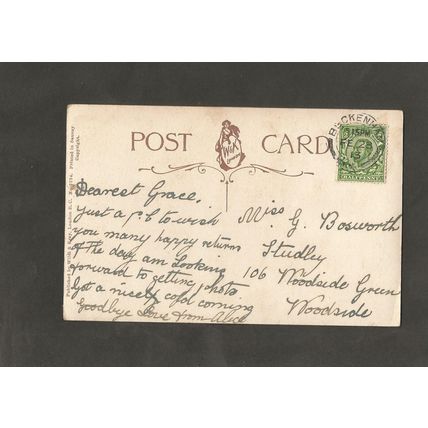 POST CARD
BECKENHAM
.15PM
13
Dearest Grace.
Just a P.C to wish
you many happy returns
of the day, am looking
forward to getting photo
Got a nicely cold coming
Goodbye Love from Alice
Miss G. Bosworth
Studley
106 Woodside Green
Woodside
Published by Wildt & Kray, London E.C. Printed in Saxony
Copyright.